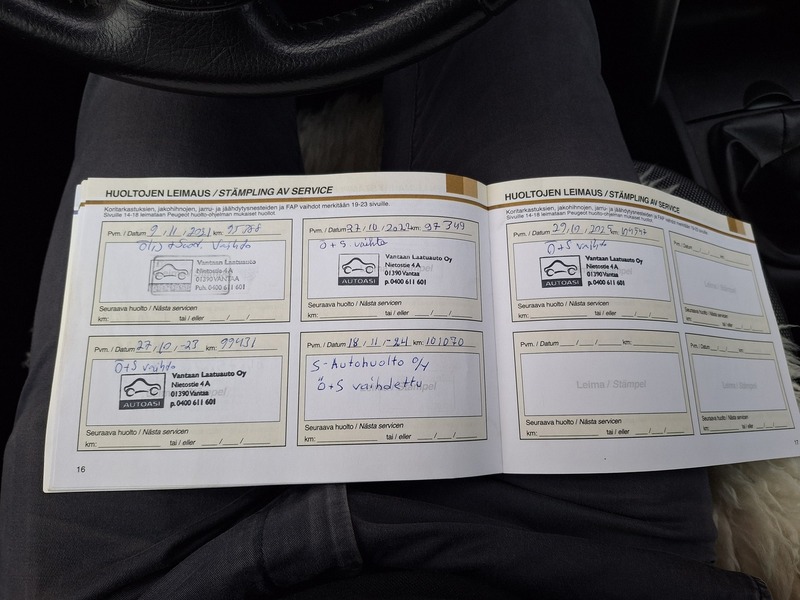 HUOLTOJEN LEIMAUS / STÄMPLING AV SERVICE
Koritarkastuksien, jakohihnojen, jarru- ja jäähdytysnesteiden ja FAP vaihdot merkitään 19-23 sivuille.
Sivuille 14-18 leimataan Peugeot huolto-ohjelman mukaiset huollot.
Pvm. / Datum 9, 11, 2021 km:
vaihdo
Vantaan Laatuauto Oy
Nietostie 4 A
01390 VANTAA
Puh. 0400 611 601
Seuraava huolto / Nästa servicen
km: tai / eller
Pvm. / Datum 27, 10, 2022 km: 97 349
Ö+S vaihto
Vantaan Laatuauto Oy
Nietostie 4 A
01390 Vantaa
p. 0400 611 601
AUTOASI
Seuraava huolto / Nästa servicen
km: tai / eller
Pvm. / Datum 27, 10, -23 km: 99431
Ö+S vaihdo
Vantaan Laatuauto Oy
Nietostie 4 A
01390 Vantaa
p. 0400 611 601
AUTOASI
Seuraava huolto / Nästa servicen
km: tai / eller
Pvm. / Datum 18, 11, -24 km: 101070
S-Autohuolto Oy
Ö+S vaihdettu
Seuraava huolto / Nästa servicen
km: tai / eller
16
HUOLTOJEN LEIMAUS / STÄMPLING AV SERVICE
Koritarkastuksien, jakohihnojen, jarru- ja jäähdytysnesteiden ja FAP vaihdot merkitään 19-23 sivuille.
Sivuille 14-18 leimataan Peugeot huolto-ohjelman mukaiset huollot.
Pvm. / Datum 29, 10, 2025
Ö+S vaihdo
Vantaan Laatuauto Oy
Nietostie 4 A
01390 Vantaa
p. 0400 611 601
AUTOASI
Seuraava huolto / Nästa servicen
km: tai / eller
Pvm. / Datum km:
Leima / Stämpel
Seuraava huolto / Nästa servicen
km: tai / eller
Pvm. / Datum km:
Leima / Stämpel
Seuraava huolto / Nästa servicen
km: tai / eller
Pvm. / Datum km:
Leima / Stämpel
Seuraava huolto / Nästa servicen
km: tai / eller